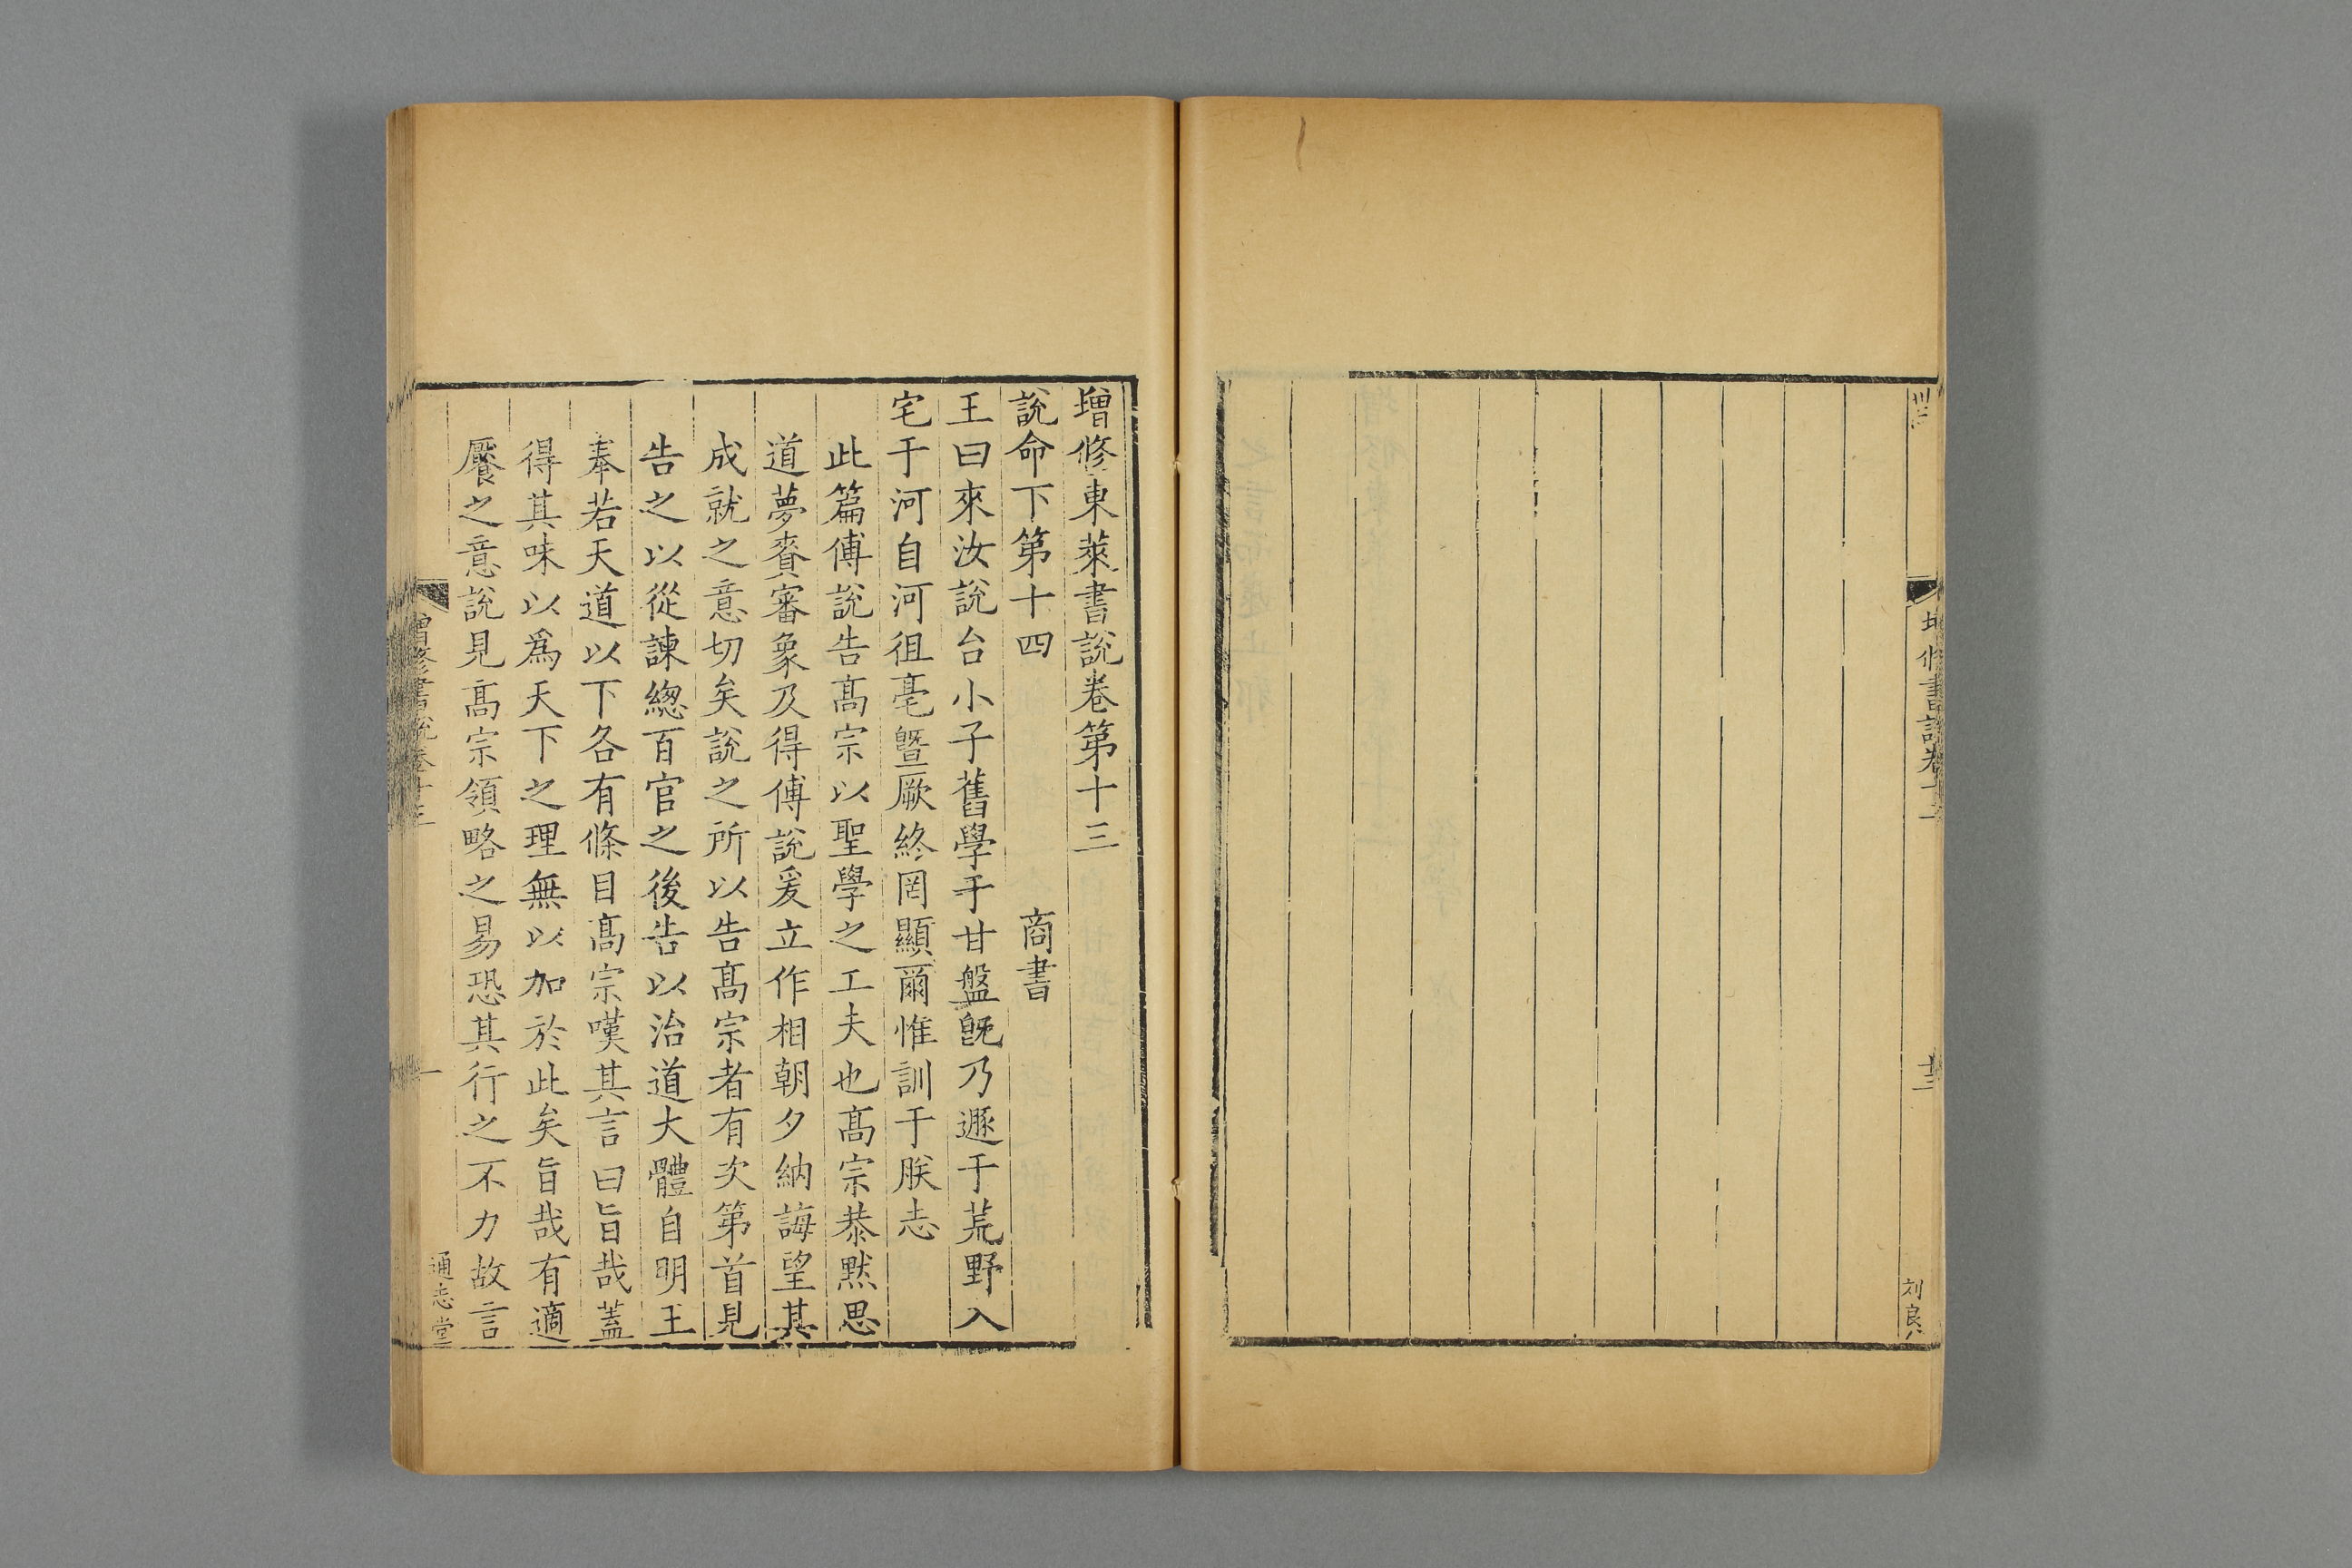 增修東萊書說卷第十三
說命下第十四 商書
王曰來汝說台小子舊學于甘盤旣乃遯于荒野入
宅于河自河徂亳曁厥終罔顯爾惟訓于朕志
此篇傅說告髙宗以聖學之工夫也髙宗恭黙思
道夢賚審象及得傅說爰立作相朝夕納誨望其
成就之意切矣說之所以告髙宗者有次第首見
告之以從諫緫百官之後告以治道大體自明王
奉若天道以下各有條目髙宗嘆其言曰旨哉蓋
得其味以爲天下之理無以加於此矣旨哉有適
饜之意說見髙宗領略之易恐其行之不力故言
增修書說卷十三
一
通志堂
修書說卷十二
刘良